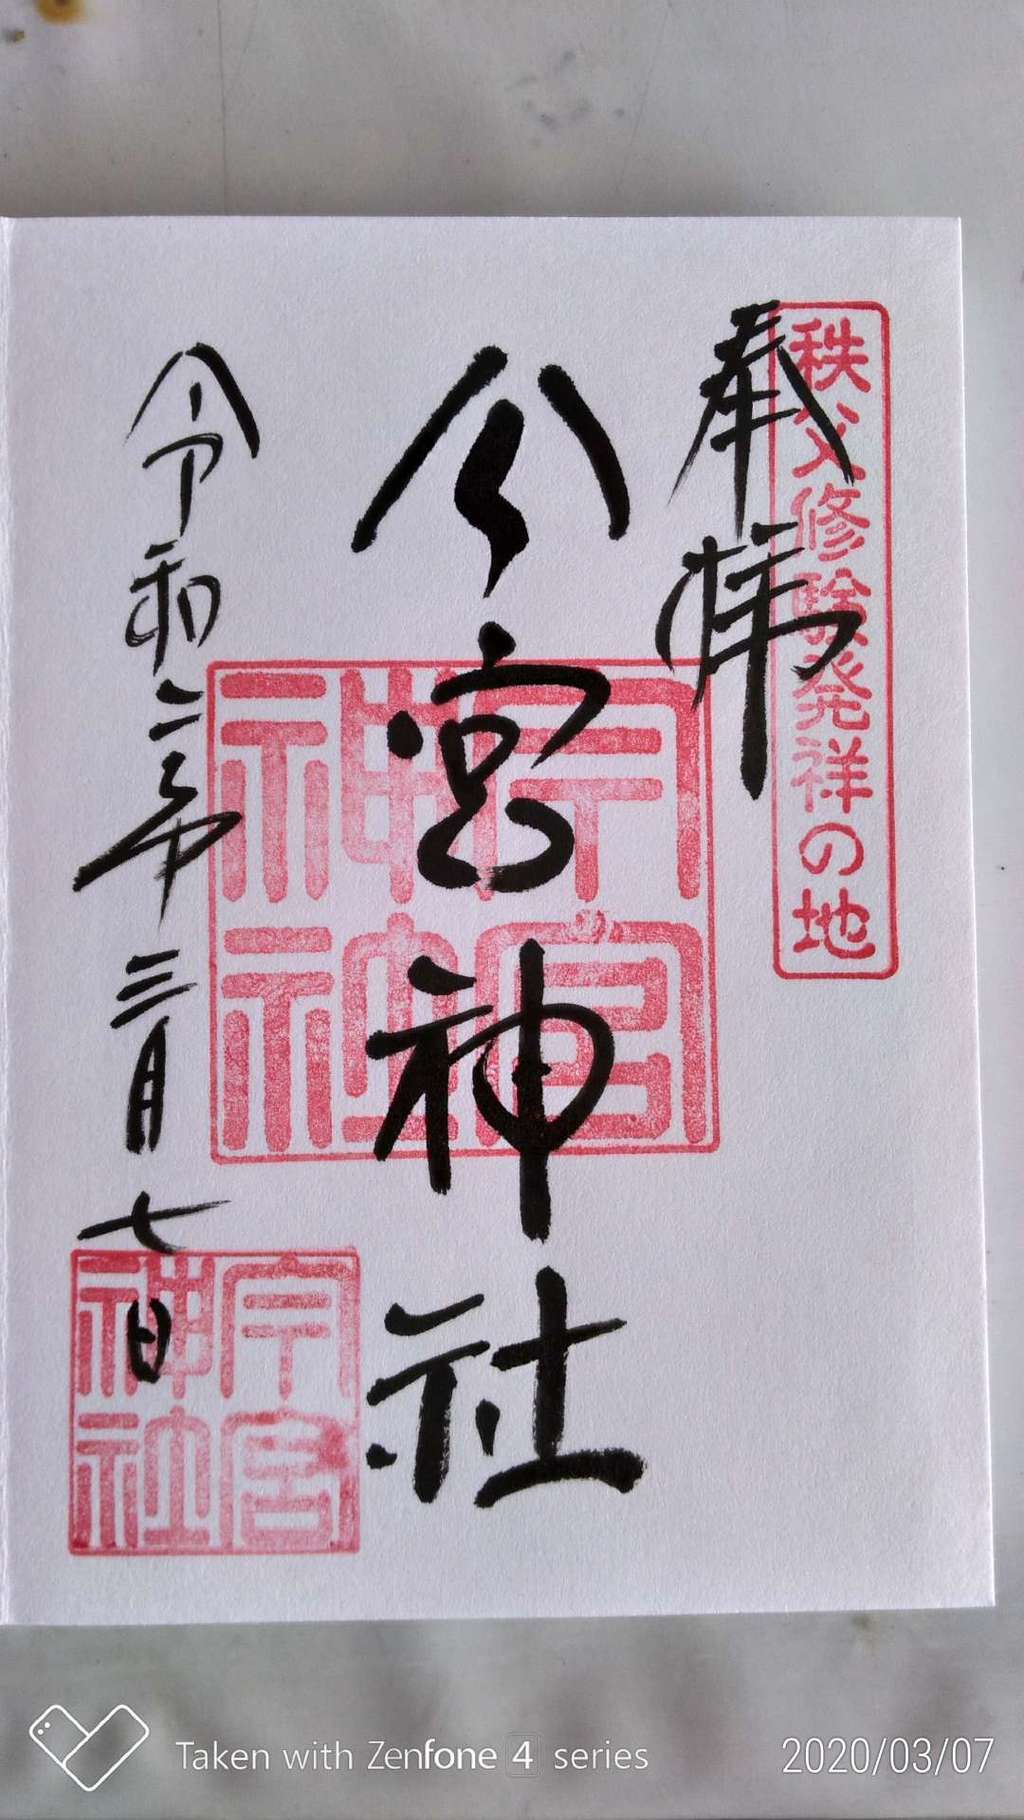 秩父修験発祥の地
奉拝
今宮神社
令和二年三月七日
今宮
神社
今宮
神社
Taken with Zenfone 4 series
2020/03/07